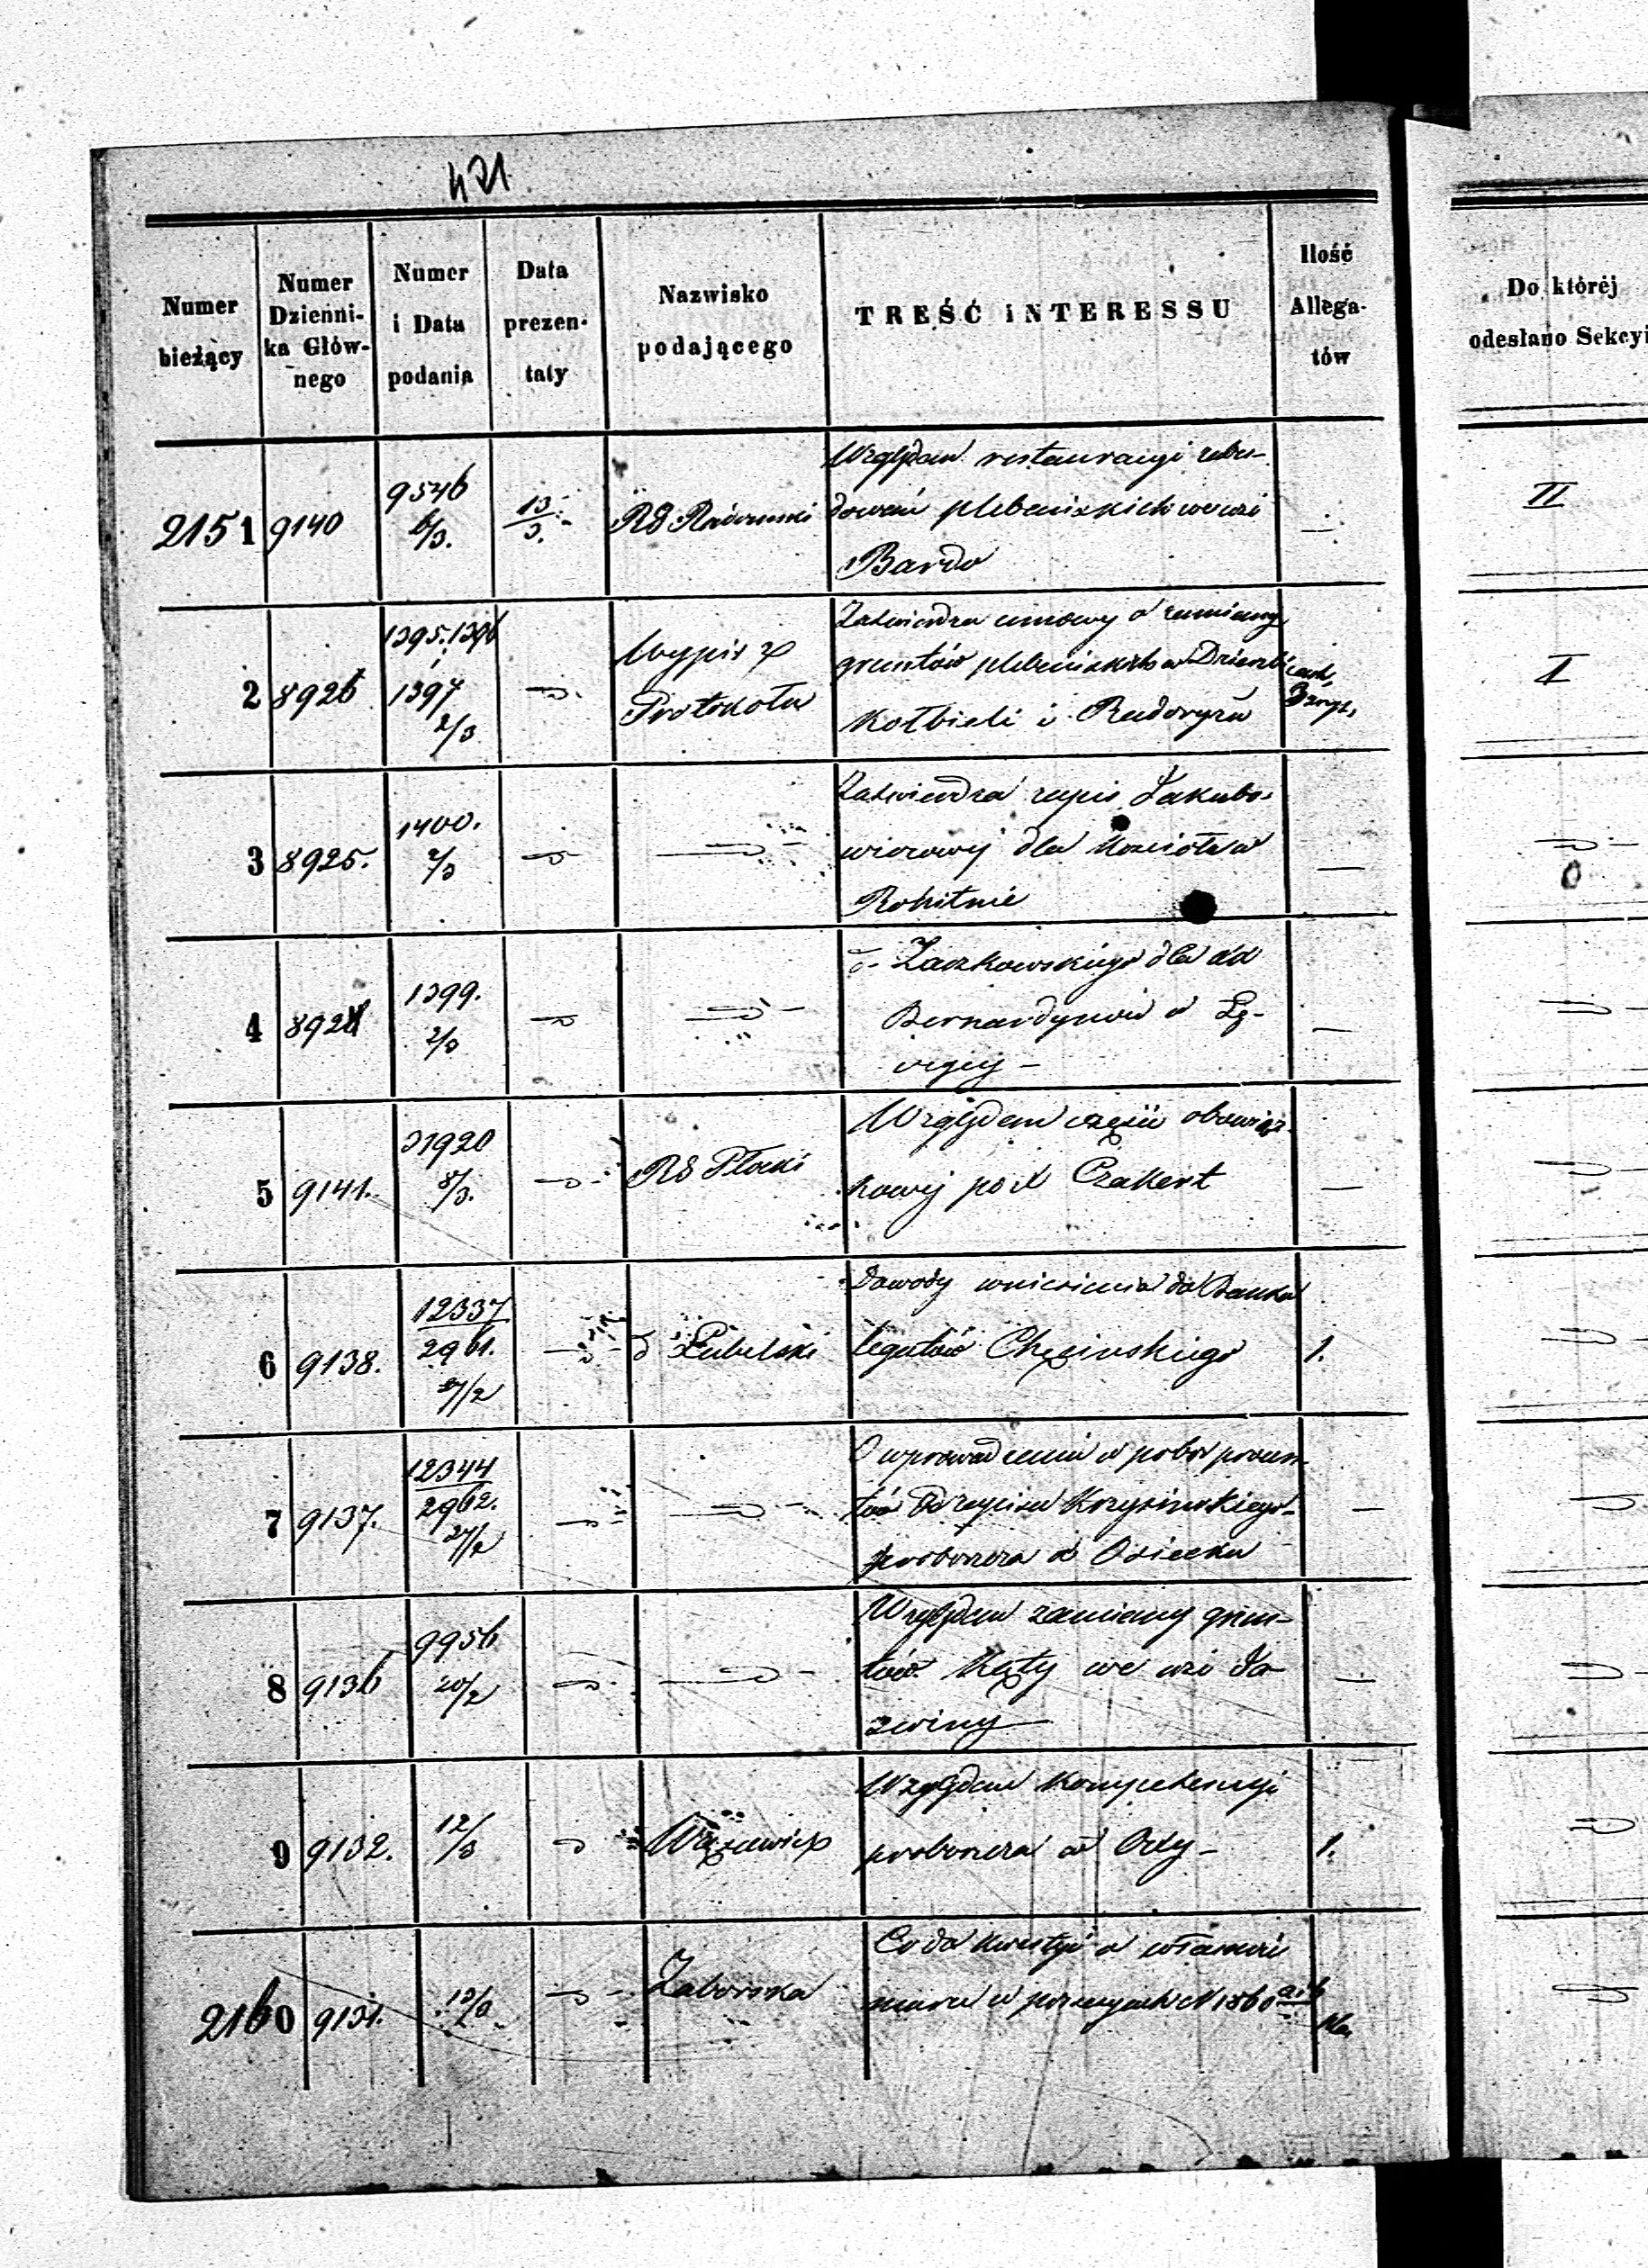 421
Numer bieżący
Numer Dzienni-ka Głów-nego
Numer i Data podania
Data prezen-taty
Nazwisko podającego
TREŚĆ INTERESSU
Ilość Allega-tów
Do której odesłano Sekcyi
2151 9140 9546 6/3. 13/3. RG Radomski
Względem restauracyi zabu-
dowań plebańskich we wsi
Bardo
—
II
2 8926 1395. 1396
1397
2/3
Wypis z
Protokołu
Zatwierdza umowy o zamianę
gruntów plebańskich w
Kołbieli i Radoryżu
I
3 8925. 1400.
2/3
Zatwierdza zapis Jakubo-
wiczowej dla Kościoła w
Rokitnie
—
4 892 1399.
2/3
Zaczkowskiego dla
Bernardynów w Łę-
czycy —
—
5 9141. 31920
8/3.
RG Płocki
Względem części obowiąz-
kowej po Czakert
—
6 9138. 12337
2961.
27/2
Lubelski
Dowody wniesienia do Banku
legatów Chęcińskiego
1.
7 9137. 12344
2962.
27/2
O wprowadzenie w pobór procen-
tów zapisu Krzysińskiego
proboszcza w Osiecku
—
8 9136 9956
20/2
Względem zamiany grun-
tów Kąty we wsi Ja-
zwiny —
—
9 9132. 12/3
Względem kompetencyi
proboszcza w Orły —
1.
2160 9131. 13/3
Zaborska
Co do kwestyi o własność
muru w possesyach N 1860 a i b